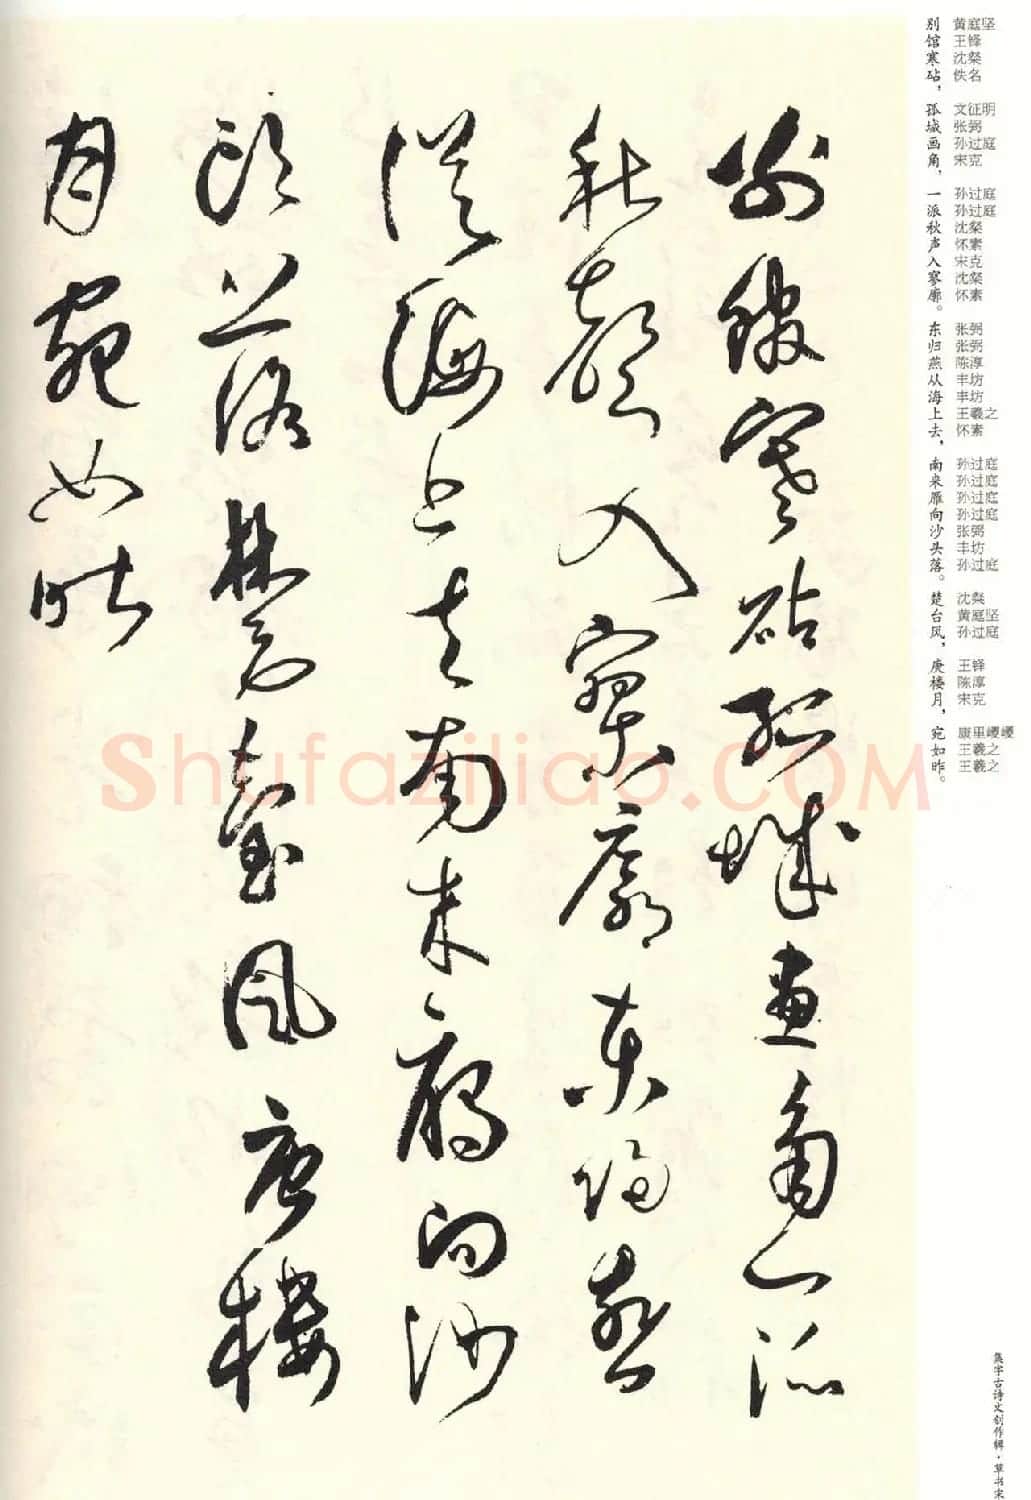 別館寒砧孤城畫角一派
秋聲入寥廓東歸燕
從海上去南來雁向沙
頭落楚臺風庾樓
月宛如昨
别馆寒砧，孤城画角，一派秋声入寥廓。东归燕从海上去，南来雁向沙头落。楚台风，庾楼月，宛如昨。
黄庭坚
王铎
沈粲
佚名
文征明
张弼
孙过庭
宋克
孙过庭
孙过庭
沈粲
怀素
宋克
沈粲
怀素
张弼
张弼
陈淳
丰坊
丰坊
王羲之
怀素
孙过庭
孙过庭
孙过庭
孙过庭
张弼
丰坊
孙过庭
沈粲
黄庭坚
孙过庭
王铎
陈淳
宋克
康里巎巎
王羲之
王羲之
集字古诗文创作辑·草书宋
Shufaziliao.COM